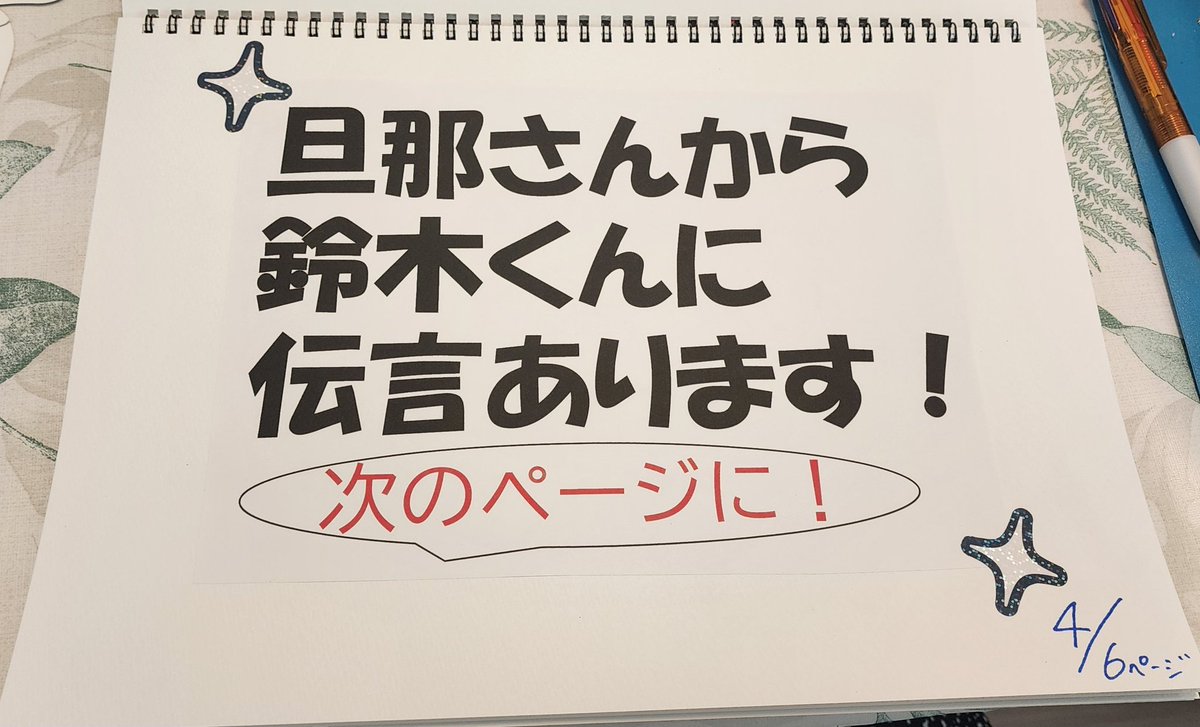 旦那さんから
鈴木くんに
伝言あります！
次のページに！
4/6ページ